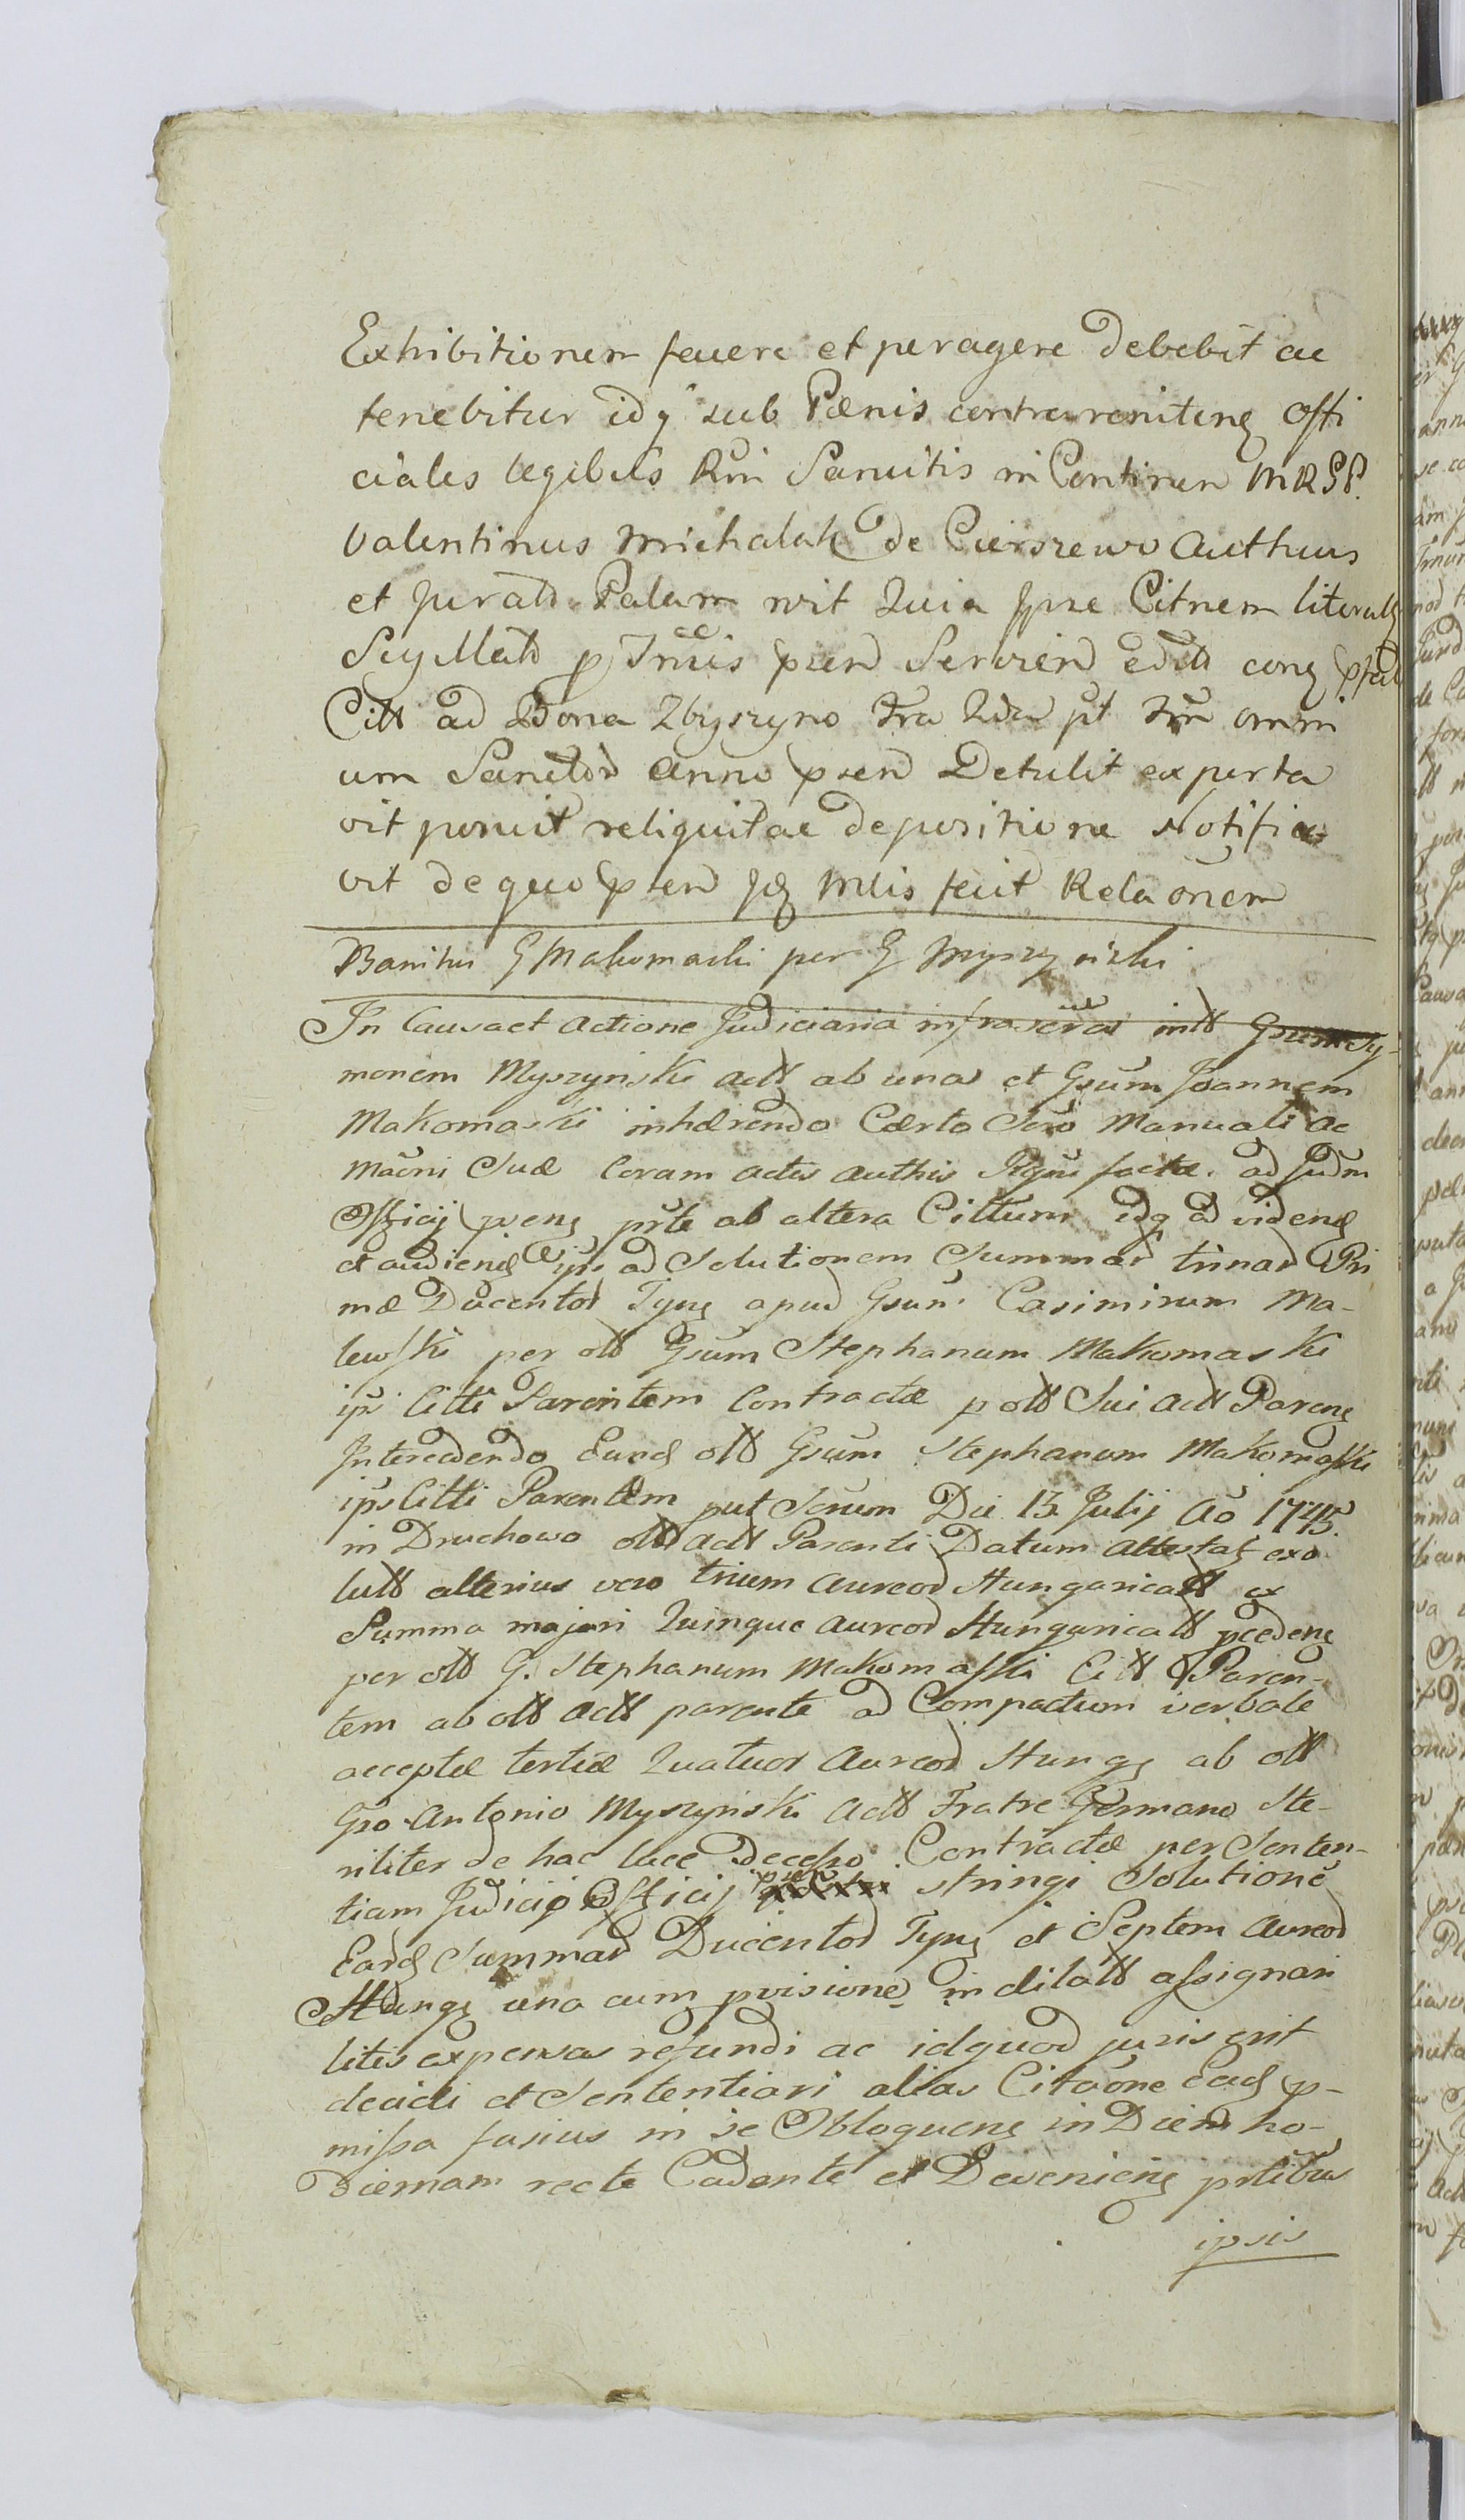 Exhibitionem facere et peragere debebit ac
tenebitur idq sub Pænis contraveniteng Offi
ciales legibus Rni Sancitis in Contraven MRSP.
Valentinus Michalak de Cierszewo Authus
et Jurato Palam rvit Quia ipse Citnem literal
Sigillato p Jmcis psen Servien edito cong
Citt ad Bona Zbyszyno fra pt omni
um Sanctor anno psen Detulit exporta
vit posuit reliquit ac depositione Notifica
vit de quo psen Jq Mlis fecit Relaonem
Banitio G Makomaski per G Myszyński
In Causa et Actione Judiciaria infrascra intt Gsum Sy-
monem Myszyński Actt ab una et Gsum Joannem
Makomaski inhærendo Cærto Scro Manuali ac
Maūni Suæ Coram Actis Authis Rgni factæ ad Judm
Officij pseng prte ab altera Cittum idq ad videng
et audieng ips ad Solutionem Summar trinar Pri
mæ Ducentor Tynf apud Gsum Casimirum Ma-
lewski per ott Gsum Stephanum Makomaski
ips Citti Parentem Contractæ p ott Sui Actt Pareng
Intercedendo Eund ott Gsum Stephanum Makomaski
ips Citti Parentem put Scrum Die 13 Julij Ao 1745.
in Druchowo ott Actt Parenti Datum attestat exo
lutt alterius vero trium Aureor Hungaricatt ex
Summa majori Quinque Aureor Hungaricatt pcedeng
per ott G. Stephanum Makomaski Citt Paren-
tem ab ott Actt parente ad Compactum verbale
acceptæ tertiæ Quatuor Aureor Hung ab ott
Gso Antonio Myszyński Actt Fratre Germano Ste-
riliter de hac luce Decesso Contractæ per Senten-
tiam Judicij Officij psen stringi Solutione
Eard Summar Ducentor Tynf et Septem Aureor
Hung una cum pvisione in dilatt assignari
litis expensas refundi ac idquod juris erit
decidi et Sententiari alias Citaone Ead p-
missa fusius in se Obloqueng in Diem ho-
diernam recte Cadente et Devenieng prtibus
ipsis